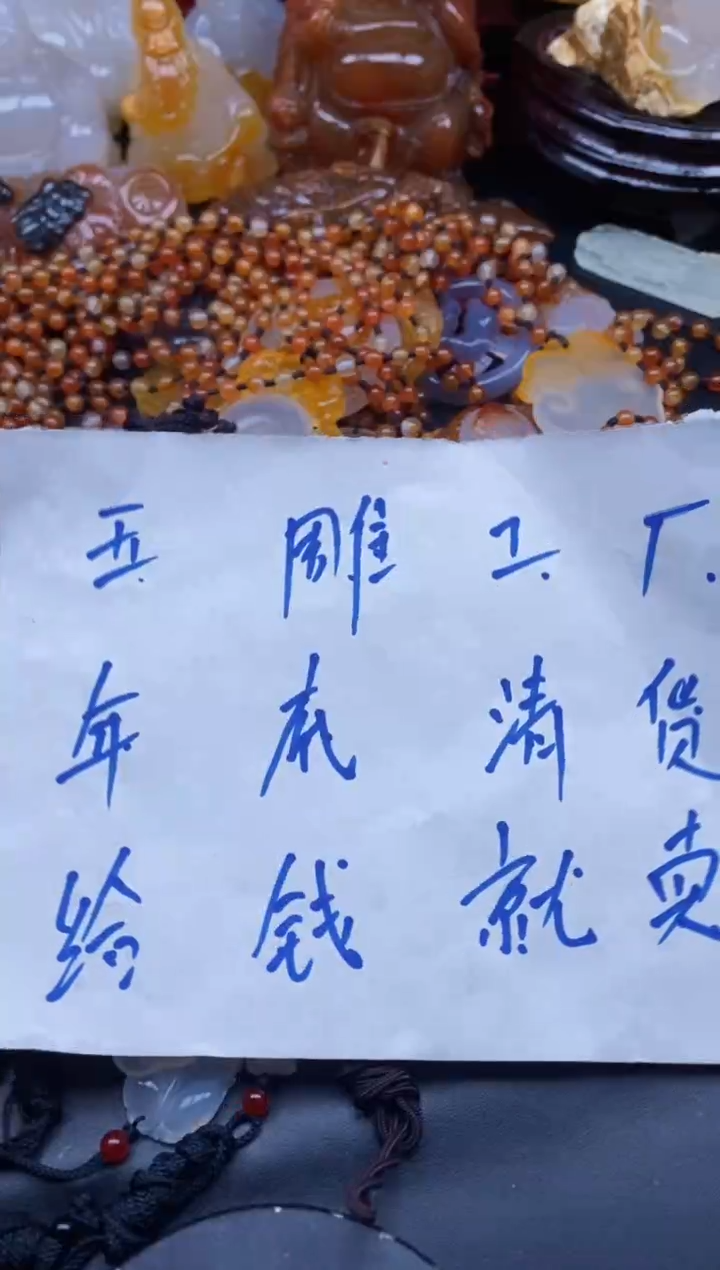 玉雕工厂.
年底清货
给钱就卖